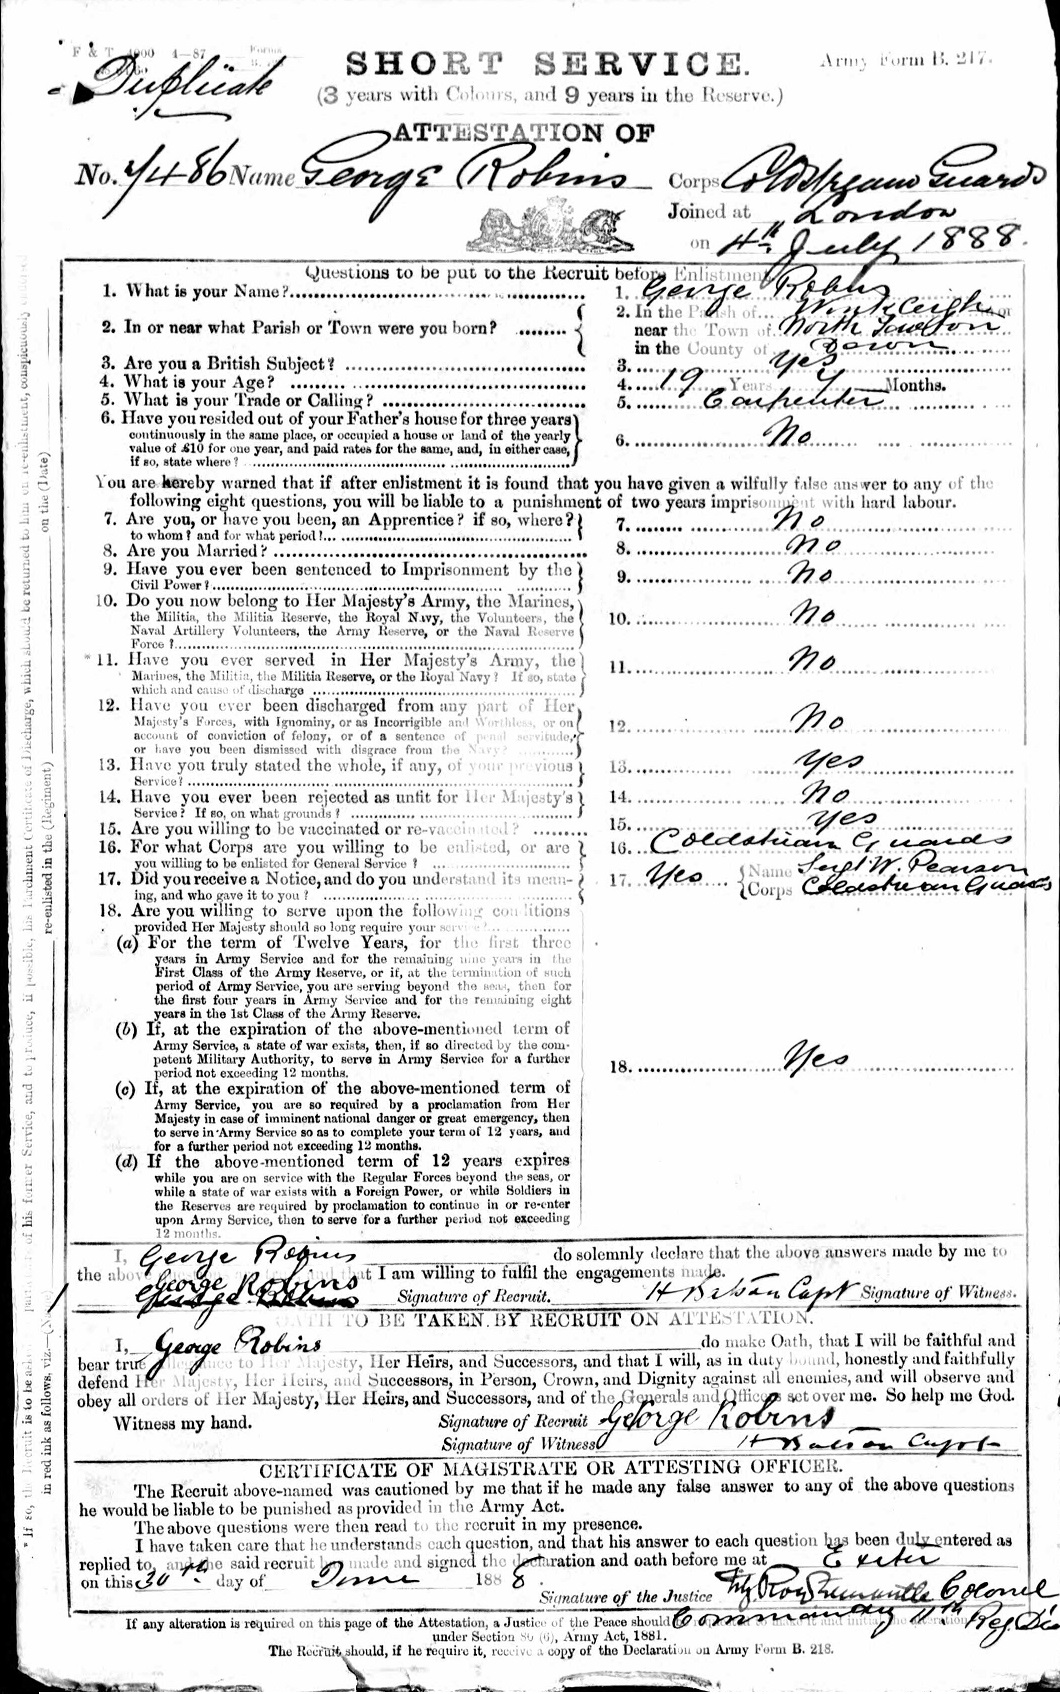 F & T 4000 4—87 Forms
Duplicate
SHORT SERVICE.
Army Form B. 217.
(3 years with Colours, and 9 years in the Reserve.)
ATTESTATION OF
No. 7486 Name George Robins Corps Coldstream Guards
Joined at London
on 4th July 1888.
Questions to be put to the Recruit before Enlistment.
1. What is your Name? 1. George Robins
2. In or near what Parish or Town were you born? 2. In the Parish of Winkleigh in or
near the Town of North Tawton
in the County of Devon
3. Are you a British Subject? 3. Yes
4. What is your Age? 4. 19 Years 7 Months.
5. What is your Trade or Calling? 5. Carpenter
6. Have you resided out of your Father's house for three years
continuously in the same place, or occupied a house or land of the yearly
value of £10 for one year, and paid rates for the same, and, in either case,
if so, state where? 6. No
You are hereby warned that if after enlistment it is found that you have given a wilfully false answer to any of the
following eight questions, you will be liable to a punishment of two years imprisonment with hard labour.
7. Are you, or have you been, an Apprentice? if so, where?
to whom? and for what period? 7. No
8. Are you Married? 8. No
9. Have you ever been sentenced to Imprisonment by the
Civil Power? 9. No
10. Do you now belong to Her Majesty's Army, the Marines,
the Militia, the Militia Reserve, the Royal Navy, the Volunteers, the
Naval Artillery Volunteers, the Army Reserve, or the Naval Reserve
Force? 10. No
* 11. Have you ever served in Her Majesty's Army, the
Marines, the Militia, the Militia Reserve, or the Royal Navy? If so, state
which and cause of discharge 11. No
12. Have you ever been discharged from any part of Her
Majesty's Forces, with Ignominy, or as Incorrigible and Worthless, or on
account of conviction of felony, or of a sentence of penal servitude,
or have you been dismissed with disgrace from the Navy? 12. No
13. Have you truly stated the whole, if any, of your previous
Service? 13. Yes
14. Have you ever been rejected as unfit for Her Majesty's
Service? If so, on what grounds? 14. No
15. Are you willing to be vaccinated or re-vaccinated? 15. Yes
16. For what Corps are you willing to be enlisted, or are
you willing to be enlisted for General Service? 16. Coldstream Guards
17. Did you receive a Notice, and do you understand its mean-
ing, and who gave it to you? 17. Yes Name Sergt W. Pearson
Corps Coldstream Guards
18. Are you willing to serve upon the following conditions
provided Her Majesty should so long require your service?
(a) For the term of Twelve Years, for the first three
years in Army Service and for the remaining nine years in the
First Class of the Army Reserve, or if, at the termination of such
period of Army Service, you are serving beyond the seas, then for
the first four years in Army Service and for the remaining eight
years in the 1st Class of the Army Reserve.
(b) If, at the expiration of the above-mentioned term of
Army Service, a state of war exists, then, if so directed by the com-
petent Military Authority, to serve in Army Service for a further
period not exceeding 12 months. 18. Yes
(c) If, at the expiration of the above-mentioned term of
Army Service, you are so required by a proclamation from Her
Majesty in case of imminent national danger or great emergency, then
to serve in Army Service so as to complete your term of 12 years, and
for a further period not exceeding 12 months.
(d) If the above-mentioned term of 12 years expires
while you are on service with the Regular Forces beyond the seas, or
while a state of war exists with a Foreign Power, or while Soldiers in
the Reserves are required by proclamation to continue in or re-enter
upon Army Service, then to serve for a further period not exceeding
12 months.
I, George Robins do solemnly declare that the above answers made by me to
the above that I am willing to fulfil the engagements made.
George Robins
George Robins Signature of Recruit. H Batson Capt Signature of Witness.
OATH TO BE TAKEN BY RECRUIT ON ATTESTATION.
I, George Robins do make Oath, that I will be faithful and
bear true allegiance to Her Majesty, Her Heirs, and Successors, and that I will, as in duty bound, honestly and faithfully
defend Her Majesty, Her Heirs, and Successors, in Person, Crown, and Dignity against all enemies, and will observe and
obey all orders of Her Majesty, Her Heirs, and Successors, and of the Generals and Officers set over me. So help me God.
Witness my hand. Signature of Recruit George Robins
Signature of Witness H Batson Capt
CERTIFICATE OF MAGISTRATE OR ATTESTING OFFICER.
The Recruit above-named was cautioned by me that if he made any false answer to any of the above questions
he would be liable to be punished as provided in the Army Act.
The above questions were then read to the recruit in my presence.
I have taken care that he understands each question, and that his answer to each question has been duly entered as
replied to, and the said recruit has made and signed the declaration and oath before me at Exeter
on this 30th day of June 1888.
Signature of the Justice FitzRoy Fremantle Colonel
Commanding 11th Reg. Dis
If any alteration is required on this page of the Attestation, a Justice of the Peace should be requested to make it and initial the alteration
under Section 80 (6), Army Act, 1881.
The Recruit should, if he require it, receive a copy of the Declaration on Army Form B. 218.
* If so, the Recruit is to be asked the particulars of his former Service, and to produce, if possible, his Parchment Certificate of Discharge, which should be returned to him on re-enlistment, conspicuously endorsed
in red ink as follows, viz.—(Name) re-enlisted in the (Regiment) on the (Date)